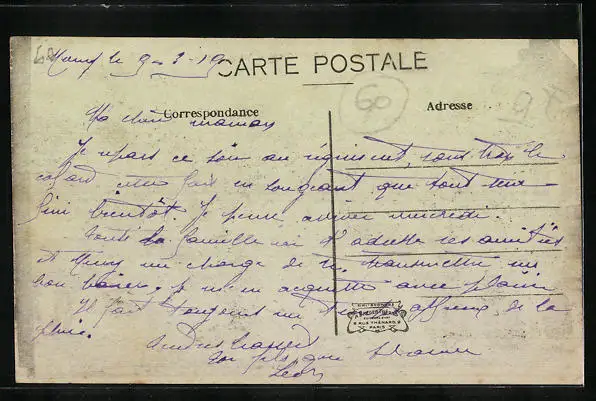 le 9-3-19
CARTE POSTALE
60
Correspondance
Adresse
Ma chère maman
Je repars ce soir au régiment, sans trop le
cafard en songeant que tout sera
fini bientôt. Je pense arriver mercredi.
Toute la famille ici t'adresse ses amitiés
et me charge de te transmettre un
bon baiser, je m'en acquitte avec plaisir
Il fait toujours un temps affreux, de la
pluie.
Ton fils qui t'aime
Léon
RUE THÉNARD
PARIS